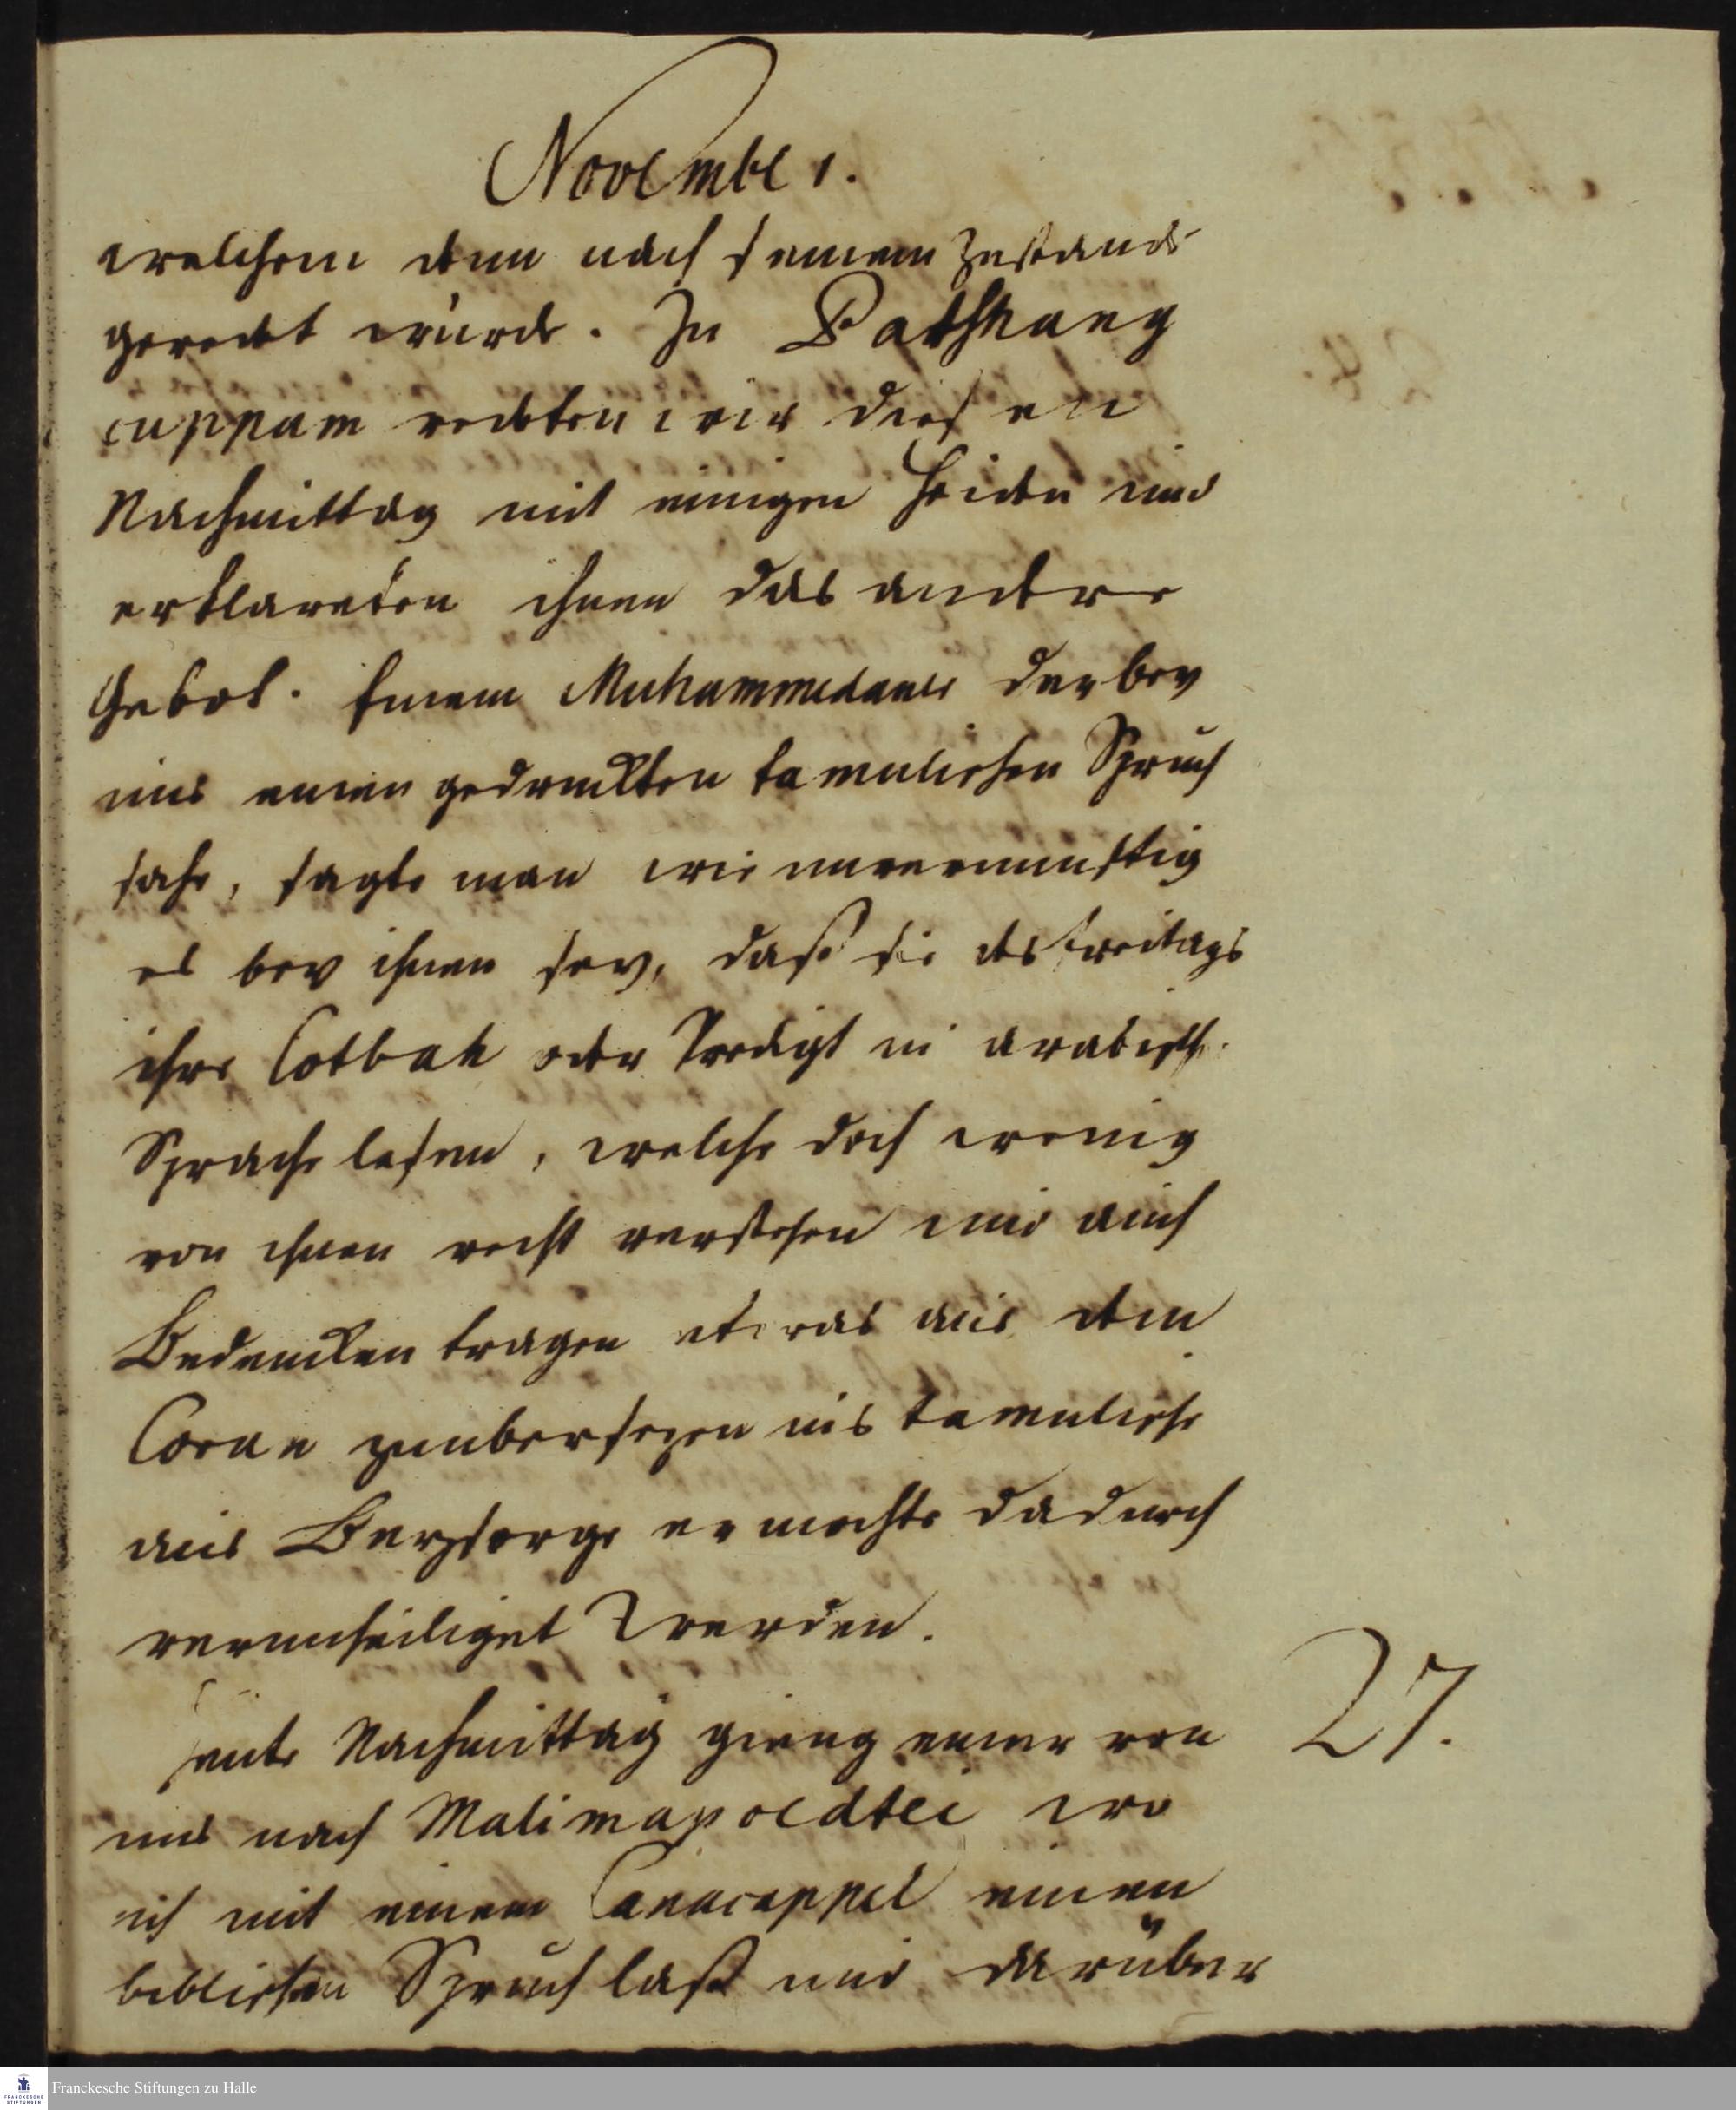 November.
welchem denn nach seinem Zustande
geredet wurde. In Bathhang
cuppam redeten wir diesen
Nachmittag mit einigen Heiden und
erklareten ihnen das andere
Gebot. Einem Muhammedaner der bey
uns einen gedruckten tamulischen Spruch
sahe, sagte man wie unvernunftig
es bey ihnen sey, daß sie des Freitags
ihre Cotbah oder Predigt in arabisch.
Sprache lesen, welche doch wenig
von ihnen recht verstehen und auch
Bedencken tragen etwas aus dem
Coran zuubersezen ins tamulische
aus Beysorge er mochte dadurch
verunheiliget werden.
Heute Nachmittag gieng einer von 27.
uns nach Malimapoedtei wo
ich mit einem Canacappel einen
biblischen Spruch laß und darüber
Franckesche Stiftungen zu Halle